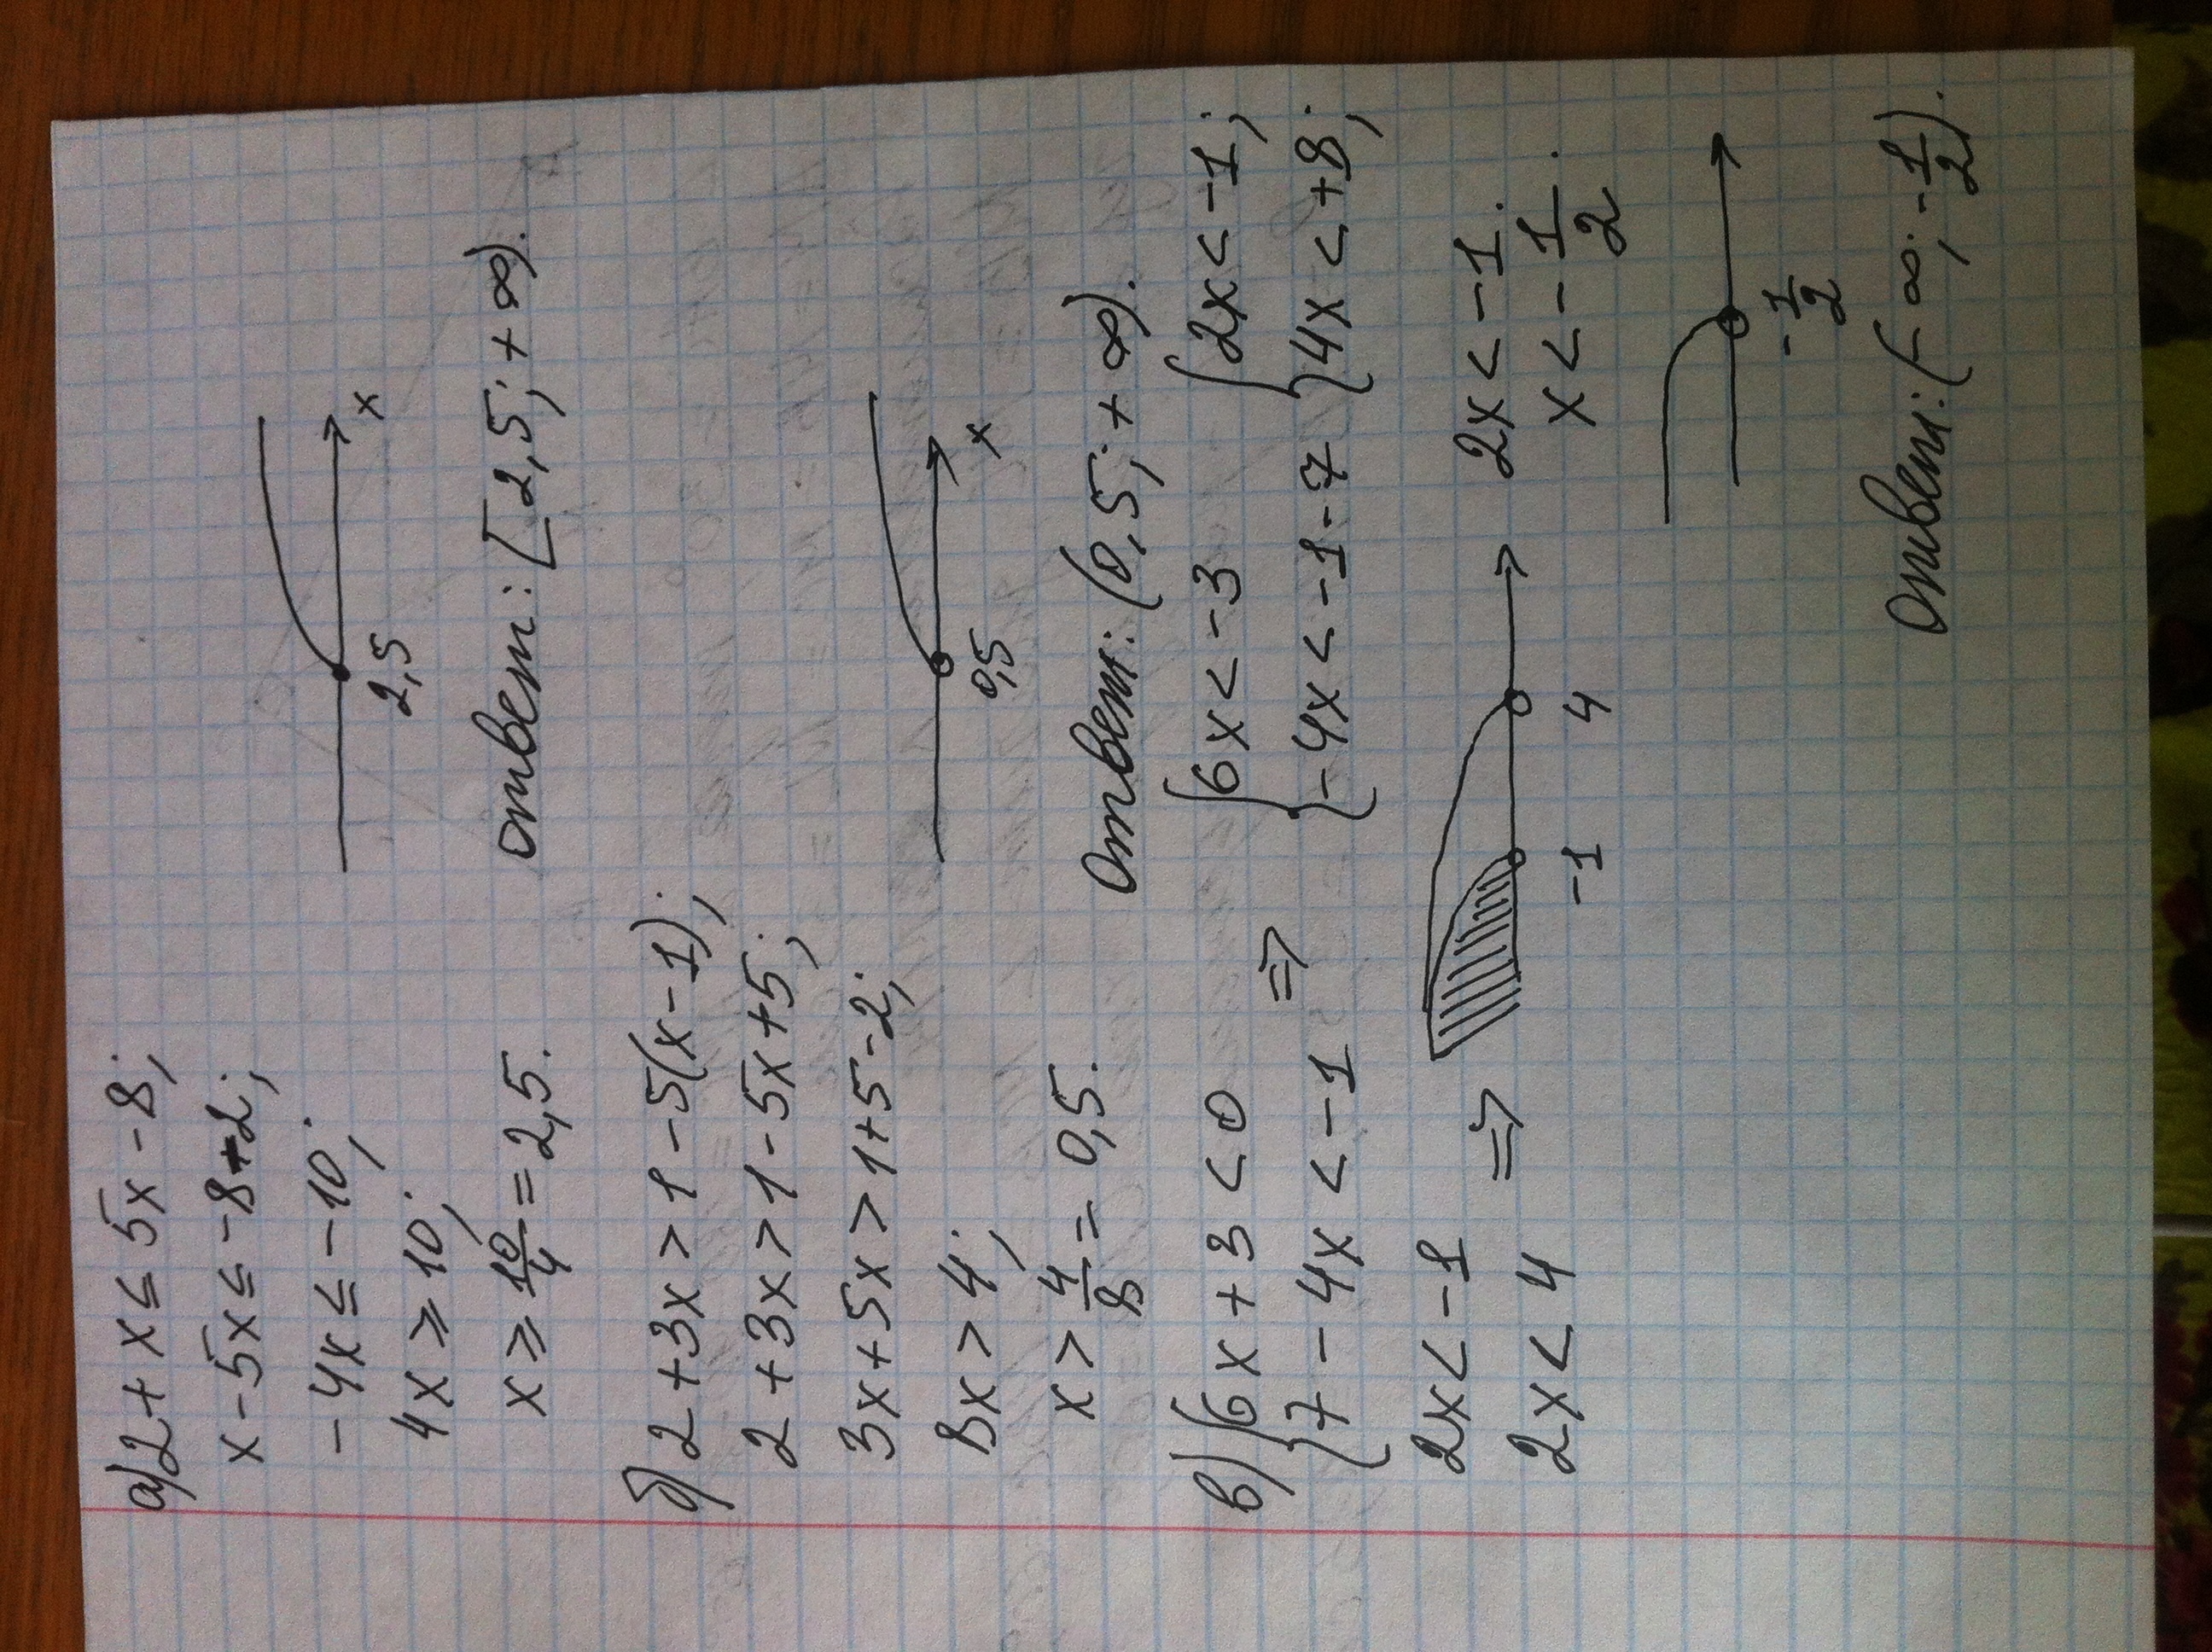 а) 2+x≤5x-8;
x-5x≤-8-2;
-4x≤-10;
4x≥10;
x≥10/4=2,5.
2,5
x
Ответ: [2,5; +∞).
б) 2+3x>1-5(x-1);
2+3x>1-5x+5;
3x+5x>1+5-2;
8x>4;
x>4/8=0,5.
0,5
x
Ответ: (0,5; +∞).
в) {6x+3<0 {6x<-3 {2x<-1;
{7-4x<-1 => {-4x<-1-7 {4x<+8;
2x<-1
2x<4 =>
-1 4
2x<-1.
x<-1/2.
-1/2
Ответ: (-∞; -1/2).